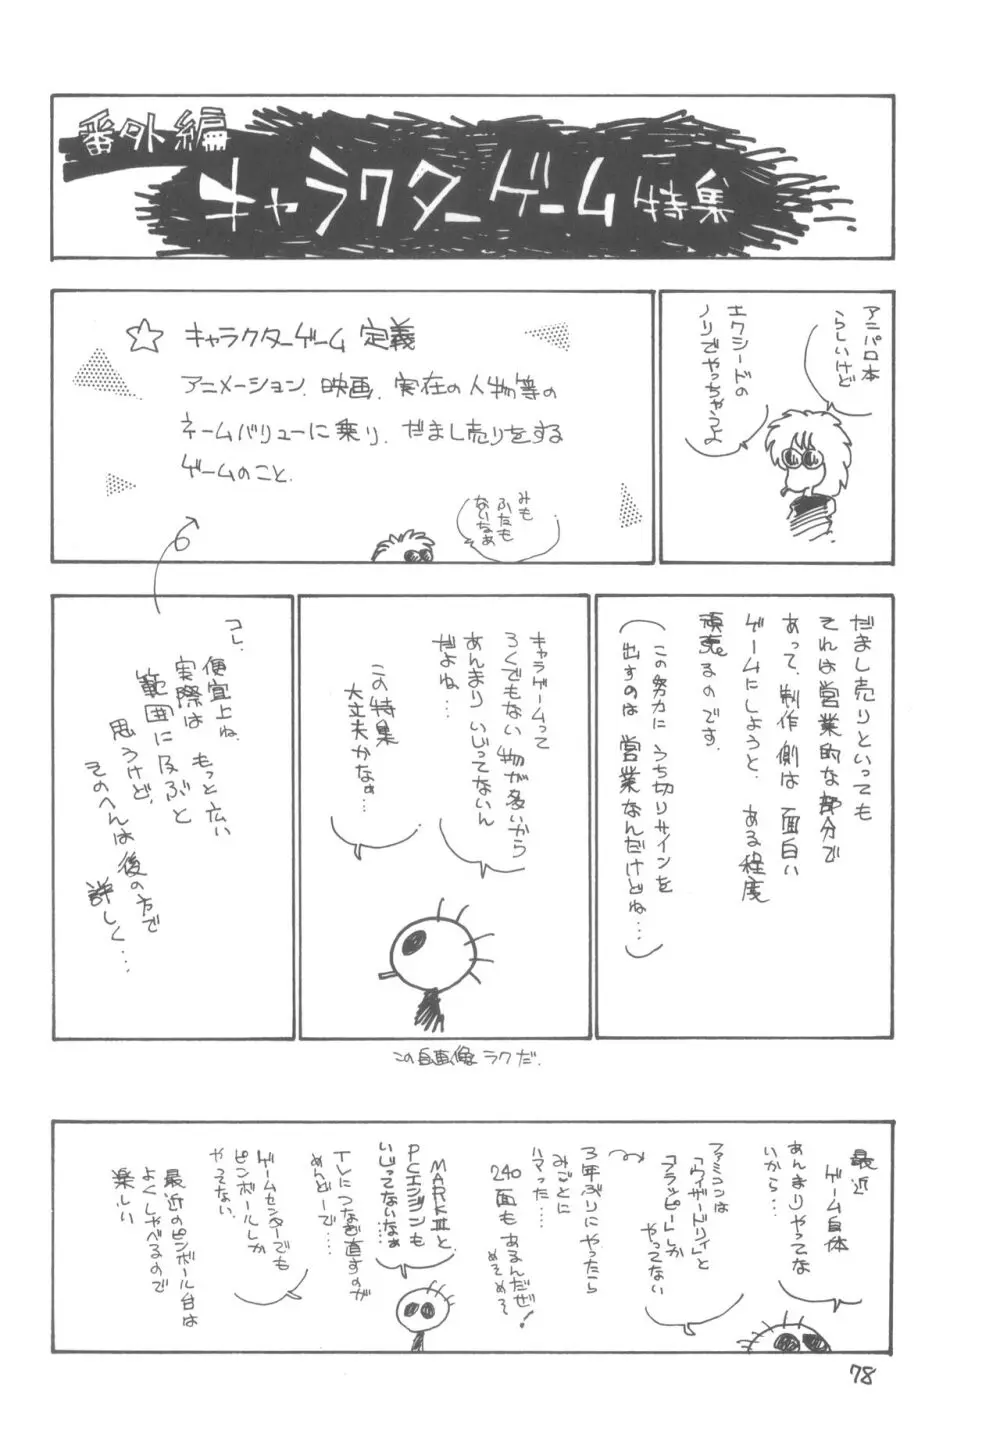 番外編
キャラクターゲーム特集
アニパロ本
らしいけど
エクシードの
ノリでやっちゃうよ
☆ キャラクターゲーム 定義
アニメーション、映画、実在の人物等の
ネームバリューに乗り、だまし売りをする
ゲームのこと、
みも
ふたも
ないなぁ
だまし売りといっても
それは営業的な部分で
あって、制作側は面白い
ゲームにしようと、ある程度
頑張るのです。
(この努力にうち切りサインを
出すのは営業なんだけどね…)
キャラゲームって
ろくでもない物が多いから
あんまりいじってないん
だよね…
この特集
大丈夫かなぁ…
コレ、
便宜上ね、もっと広い
実際は
範囲に及ぶと
思うけど、
そのへんは後の方で
詳しく…
この自画像ラクだ.
最近
ゲーム自体
あんまりやってな
いから…
ファミコンは
「ウィザードリィ」と
「フラッピー」しか
やってない
3年ぶりにやったら
みごとに
ハマった……
240
面もあるんだぜ!
めそめそ
MARKⅢと
PCエンジンも
いじってないなぁ
TVにつなぎ直すのが
めんどーで……
ゲームセンターでも
ピンボールしか
やってない、
最近のピンボール台は
よくしゃべるので
楽しい
78